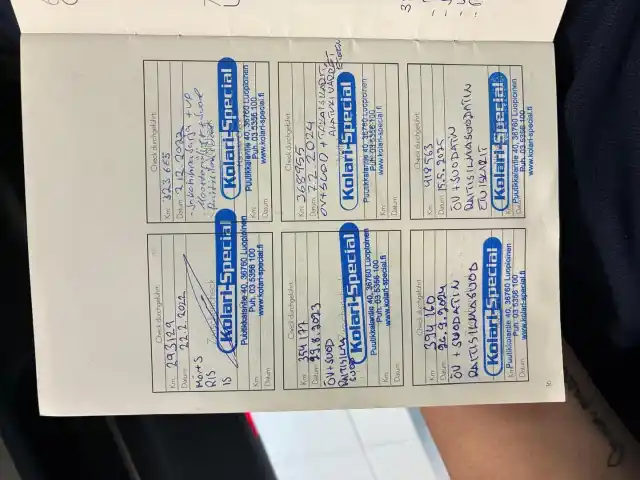 Check durchgeführt:
Km 293129
Datum 22.2.2022
Kolari-Special
Puutikkalantie 40, 36760 Luopioinen
Puh. 03 5356 100
www.kolari-special.fi
Check durchgeführt:
Km 323 655
Datum 2.12.2022
Kolari-Special
Puutikkalantie 40, 36760 Luopioinen
Puh. 03 5356 100
www.kolari-special.fi
Check durchgeführt:
Km 354 177
Datum 29.8.2023
ÖV+SUOD
RAITISILMA
SUOD
Kolari-Special
Puutikkalantie 40, 36760 Luopioinen
Puh. 03 5356 100
www.kolari-special.fi
Check durchgeführt:
Km 368955
Datum 7.2.2024
ÖV+SUOD +
Kolari-Special
Puutikkalantie 40, 36760 Luopioinen
Puh. 03 5356 100
www.kolari-special.fi
Check durchgeführt:
Km 394 160
Datum 26.9.2024
ÖV + SUODATIN
RAITISILMASUOD
Kolari-Special
Puutikkalantie 40, 36760 Luopioinen
Puh. 03 5356 100
www.kolari-special.fi
Check durchgeführt:
Km 418563
Datum 15.5.2025
ÖV + SUODATIN
RAITISILMASUODATIN
ETUJARRUT
Kolari-Special
Puutikkalantie 40, 36760 Luopioinen
Puh. 03 5356 100
www.kolari-special.fi